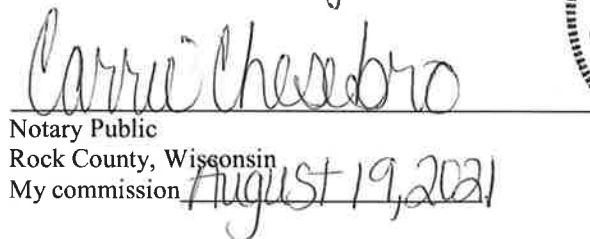 Carrie Chesebro
Notary Public
Rock County, Wisconsin
My commission August 19, 2021